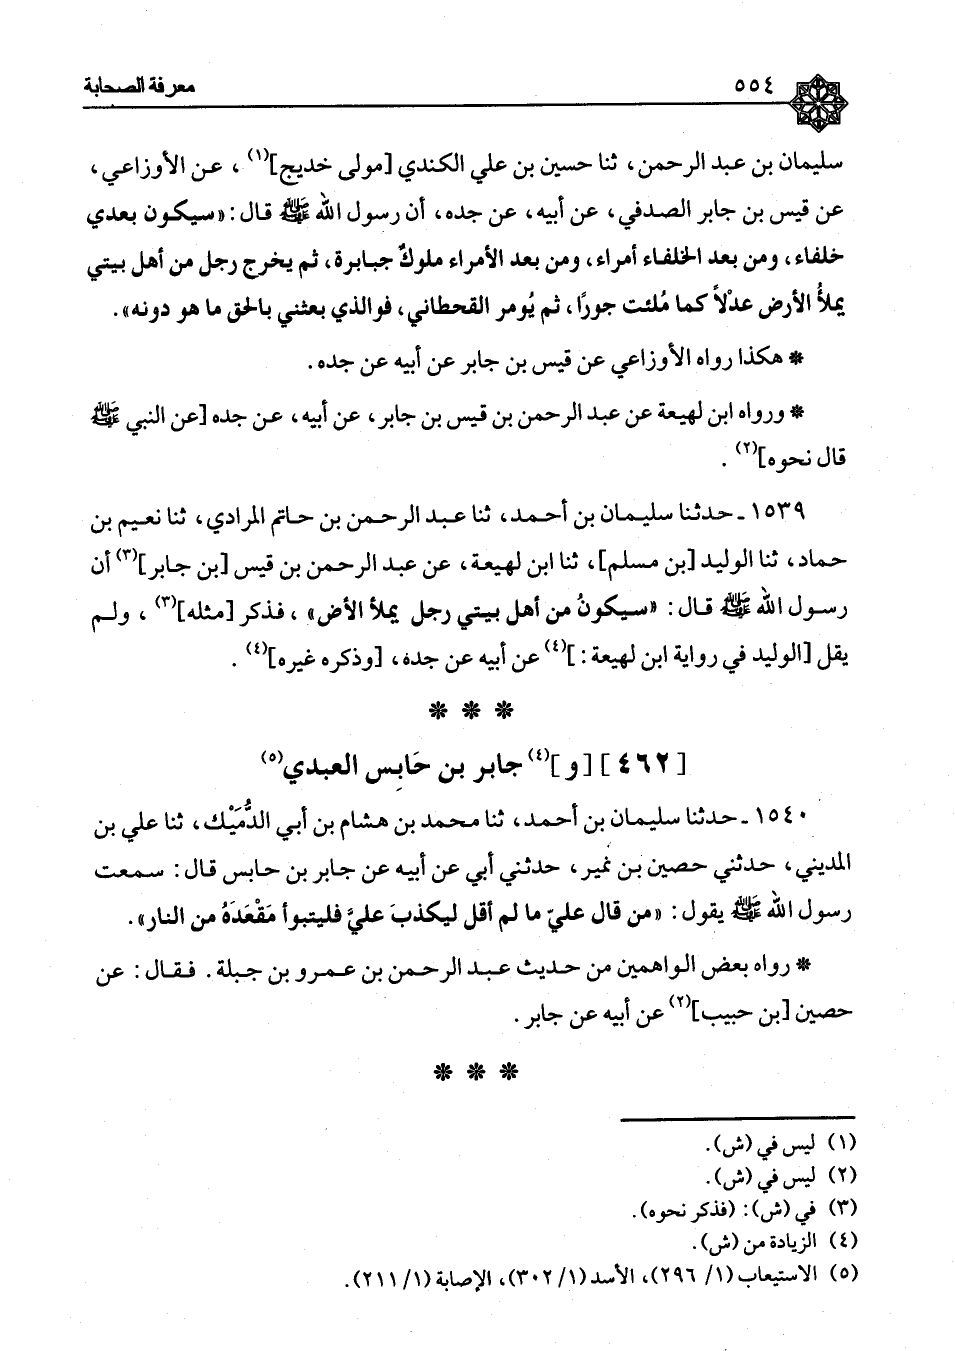 ٥٥٤ معرفة الصحابة
سليمان بن عبد الرحمن، ثنا حسين بن علي الكندي [مولى خديج](١)، عن الأوزاعي،
عن قيس بن جابر الصدفي، عن أبيه، عن جده، أن رسول الله ﷺ قال: «سيكون بعدي
خلفاء، ومن بعد الخلفاء أمراء، ومن بعد الأمراء ملوكٌ جبابرة، ثم يخرج رجل من أهل بيتي
يملأُ الأرض عدْلاً كما مُلئت جورًا، ثم يُومر القحطاني، فوالذي بعثني بالحق ما هو دونه».
* هكذا رواه الأوزاعي عن قيس بن جابر عن أبيه عن جده.
* ورواه ابن لهيعة عن عبد الرحمن بن قيس بن جابر، عن أبيه، عن جده [عن النبي ﷺ
قال نحوه](٢).
١٥٣٩ ـ حدثنا سليمان بن أحمد، ثنا عبد الرحمن بن حاتم المرادي، ثنا نعيم بن
حماد، ثنا الوليد [بن مسلم]، ثنا ابن لهيعة، عن عبد الرحمن بن قيس [بن جابر](٣) أن
رسول الله ﷺ قال: «سيكونُ من أهل بيتي رجل يملأ الأض»، فذكر [مثله](٣)، ولم
يقل [الوليد في رواية ابن لهيعة: ](٤) عن أبيه عن جده، [وذكره غيره](٤).
* * *
[٤٦٢] [و](٤) جابر بن حَابِس العبدي(٥)
١٥٤٠ ـ حدثنا سليمان بن أحمد، ثنا محمد بن هشام بن أبي الدُّمَيْك، ثنا علي بن
المديني، حدثني حصين بن نمير، حدثني أبي عن أبيه عن جابر بن حابس قال: سمعت
رسول الله ﷺ يقول: «من قال عليّ ما لم أقل ليكذبَ عليَّ فليتبوأ مَقْعَدَهُ من النار».
* رواه بعض الواهمين من حديث عبد الرحمن بن عمرو بن جبلة. فقال: عن
حصين [بن حبيب](٢) عن أبيه عن جابر.
* * *
(١) ليس في (ش).
(٢) ليس في (ش).
(٣) في (ش): (فذكر نحوه).
(٤) الزيادة من (ش).
(٥) الاستيعاب (١/ ٢٩٦)، الأسد (١/ ٣٠٢)، الإصابة (١/ ٢١١).